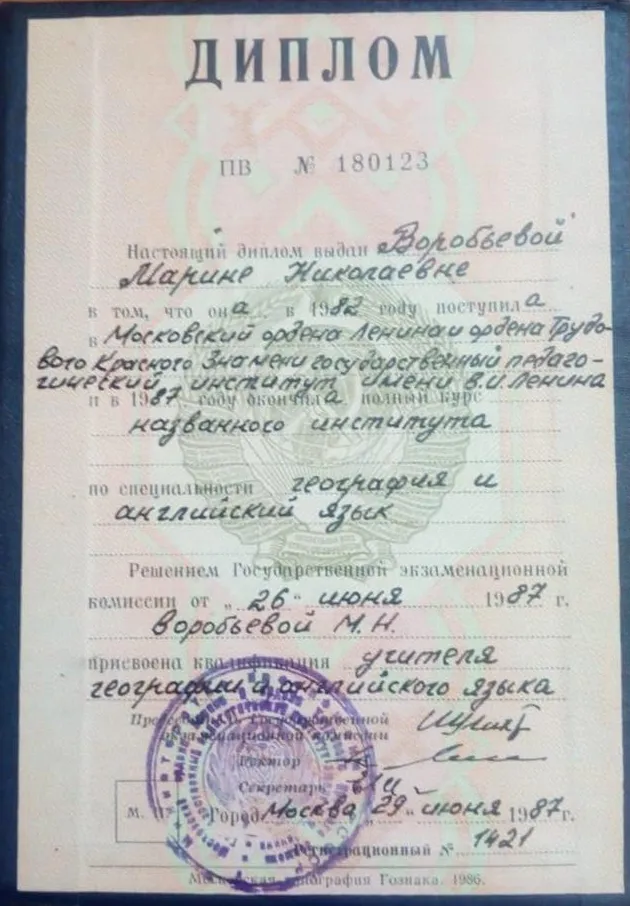 ДИПЛОМ
ПВ № 180123
Настоящий диплом выдан Воробьевой
Марине Николаевне
в том, что она в 1982 году поступила
в Московский ордена Ленина и ордена Трудо-
вого Красного Знамени государственный педаго-
гический институт имени В.И.Ленина
и в 1987 году окончила полный курс
названного института
по специальности география и
английский язык
Решением Государственной экзаменационной
комиссии от „26“ июня 1987 г.
Воробьевой М.Н.
присвоена квалификация учителя
географии и английского языка
Председатель Государственной
экзаменационной комиссии
Ректор
Секретарь
М. П.
Город Москва „29“ июня 1987 г.
Регистрационный № 1421
Московская типография Гознака. 1986.